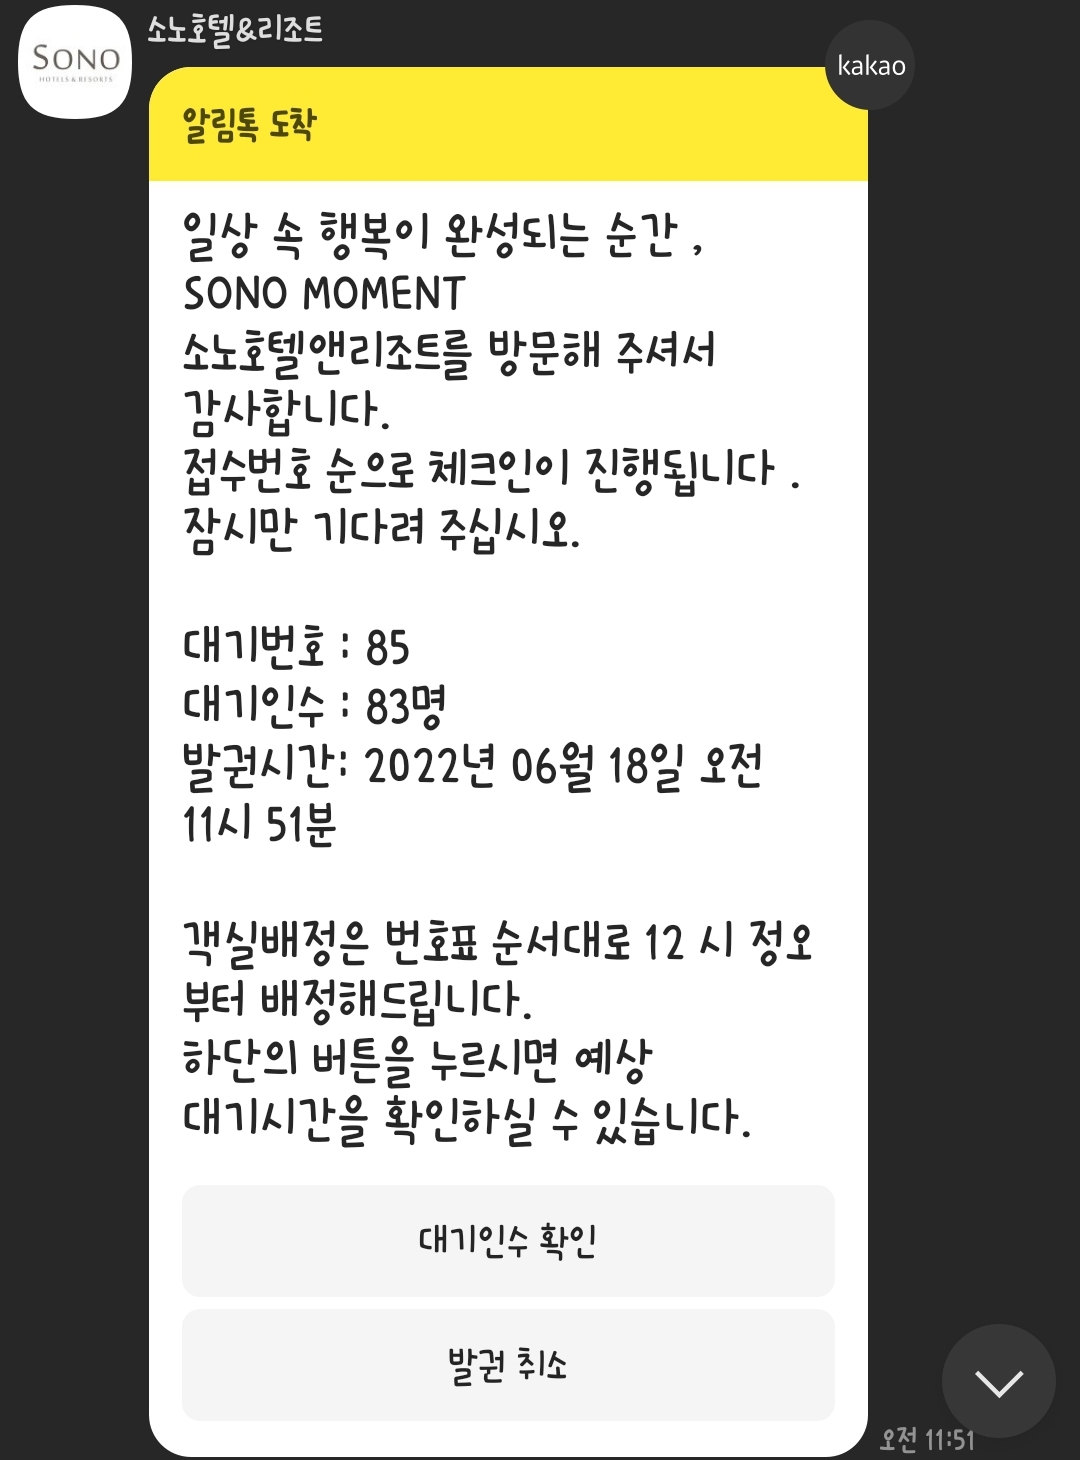 소노호텔&리조트
SONO
HOTELS & RESORTS
kakao
알림톡 도착
일상 속 행복이 완성되는 순간 ,
SONO MOMENT
소노호텔앤리조트를 방문해 주셔서
감사합니다.
접수번호 순으로 체크인이 진행됩니다 .
잠시만 기다려 주십시오.
대기번호 : 85
대기인수 : 83명
발권시간: 2022년 06월 18일 오전
11시 51분
객실배정은 번호표 순서대로 12 시 정오
부터 배정해드립니다.
하단의 버튼을 누르시면 예상
대기시간을 확인하실 수 있습니다.
대기인수 확인
발권 취소
오전 11:51